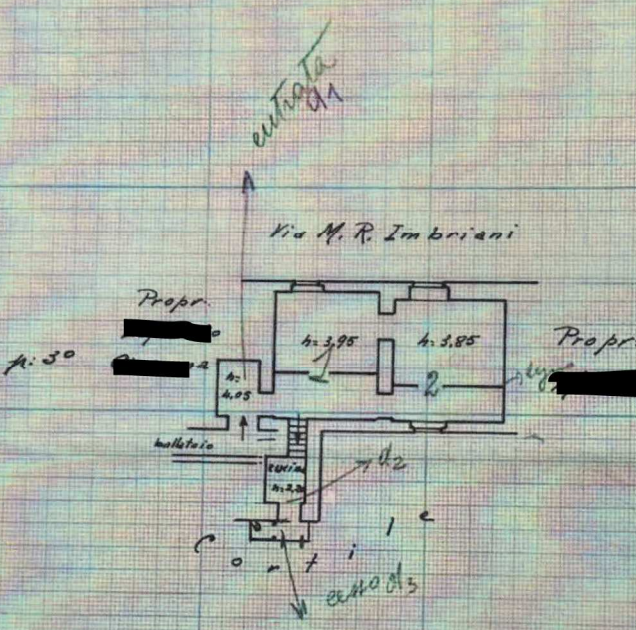 entrata
d1
Via M. R. Imbriani
Propr.
p: 3º
h= 3,95
h= 3,85
Propr.
h=
4,05
1
2
ballatoio
cucina
d2
Cortile
d3